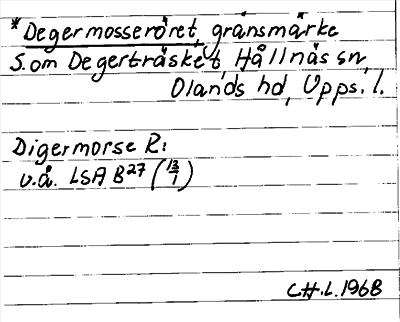 *Degermosseröret, gränsmärke
S. om Degerträsket, Hållnäs sn,
Olands hd, Upps. l.
Digermorse R:
u.å. LSA B27 (13/1)
C.H.L. 1968